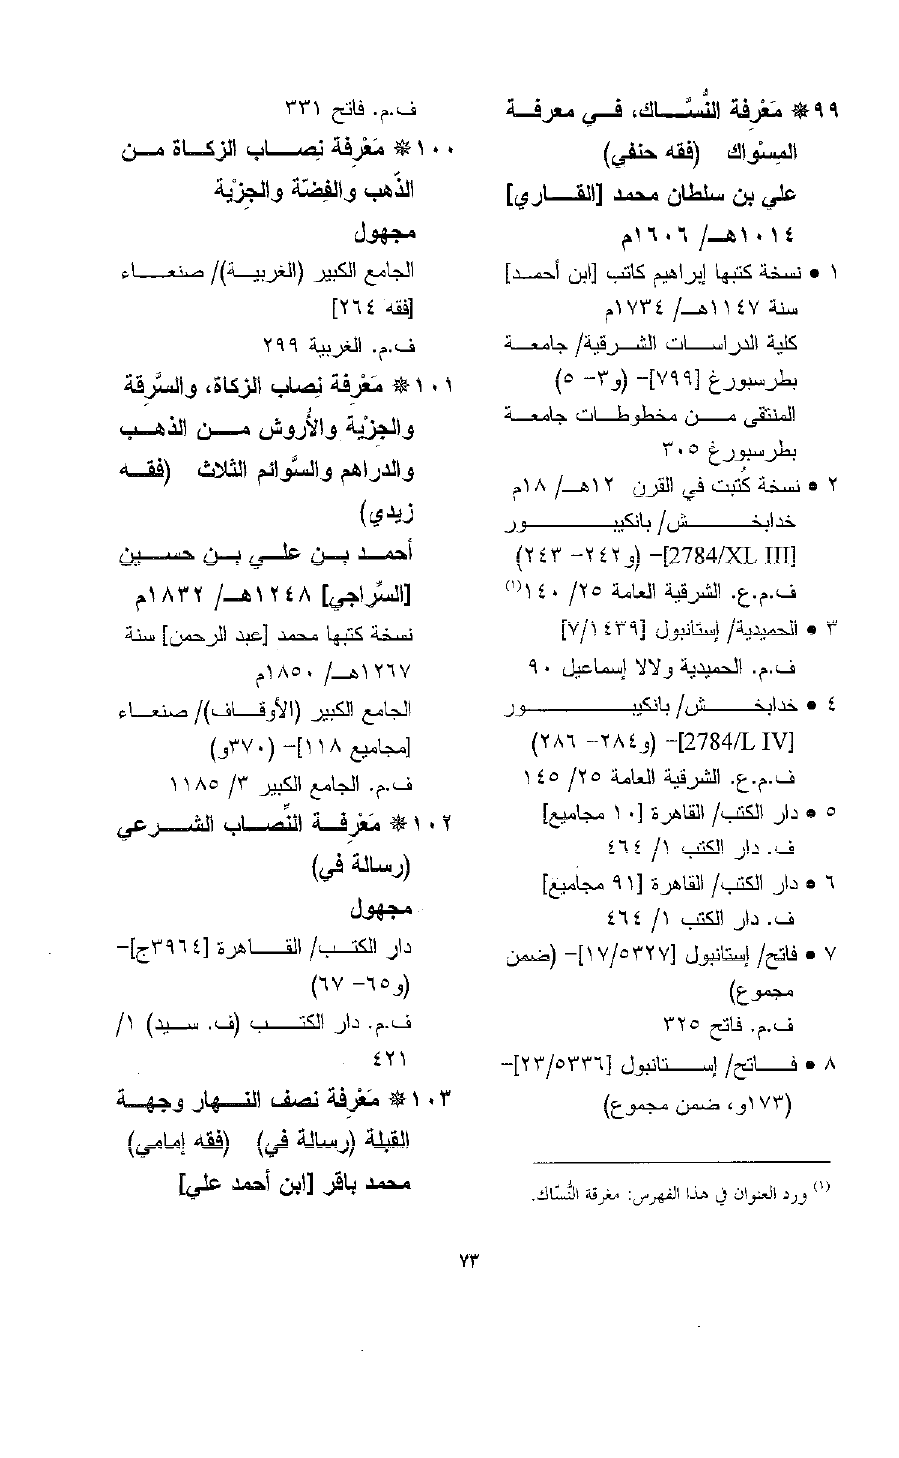 ٩٩* مَعْرِفة النُّسَّاك، في معرفة
المِسْواك (فقه حنفي)
علي بن سلطان محمد [القاري]
١٠١٤هـ/ ١٦٠٦م
١ • نسخة كتبها إبراهيم كاتب [ابن أحمد]
سنة ١١٤٧هـ/ ١٧٣٤م
كلية الدراسات الشرقية/ جامعة
بطرسبورغ [٧٩٩]- (و٣- ٥)
المنتقى من مخطوطات جامعة
بطرسبورغ ٣٠٥
٢ • نسخة كُتبت في القرن ١٢هـ/ ١٨م
خدابخش/ بانكيبور
[2784/XL III]- (و٢٤٢- ٢٤٣)
ف.م.ع. الشرقية العامة ٢٥/ ١٤٠(١)
٣ • الحميدية/ إستانبول [٧/١٤٣٩]
ف.م. الحميدية ولالا إسماعيل ٩٠
٤ • خدابخش/ بانكيبور
[2784/L IV]- (و٢٨٤- ٢٨٦)
ف.م.ع. الشرقية العامة ٢٥/ ١٤٥
٥ • دار الكتب/ القاهرة [١٠ مجاميع]
ف. دار الكتب ١/ ٤٦٤
٦ • دار الكتب/ القاهرة [٩١ مجاميع]
ف. دار الكتب ١/ ٤٦٤
٧ • فاتح/ إستانبول [١٧/٥٣٢٧]- (ضمن
مجموع)
ف.م. فاتح ٣٢٥
٨ • فاتح/ إستانبول [٢٣/٥٣٣٦]-
(١٧٣و، ضمن مجموع)
(١) ورد العنوان في هذا الفهرس: مغرقة النُّسّاك.
ف.م. فاتح ٣٣١
١٠٠* مَعْرِفة نِصاب الزكاة من
الذَّهب والفِضّة والجِزْية
مجهول
الجامع الكبير (الغربية)/ صنعاء
[فقه ٢٦٤]
ف.م. الغربية ٢٩٩
١٠١* مَعْرِفة نِصاب الزكاة، والسَّرِقة
والجِزْية والأُروش من الذهب
والدراهم والسَّوائم الثلاث (فقه
زيدي)
أحمد بن علي بن حسين
[السِّراجي] ١٢٤٨هـ/ ١٨٣٢م
نسخة كتبها محمد [عبد الرحمن] سنة
١٢٦٧هـ/ ١٨٥٠م
الجامع الكبير (الأوقاف)/ صنعاء
[مجاميع ١١٨]- (٣٧٠و)
ف.م. الجامع الكبير ٣/ ١١٨٥
١٠٢* مَعْرِفة النِّصاب الشرعي
(رسالة في)
مجهول
دار الكتب/ القاهرة [٣٩٦٤ج]-
(و٦٥- ٦٧)
ف.م. دار الكتب (ف. سيد) ١/
٤٢١
١٠٣* مَعْرِفة نصف النهار وجهة
القبلة (رسالة في) (فقه إمامي)
محمد باقر [ابن أحمد علي]
٧٣